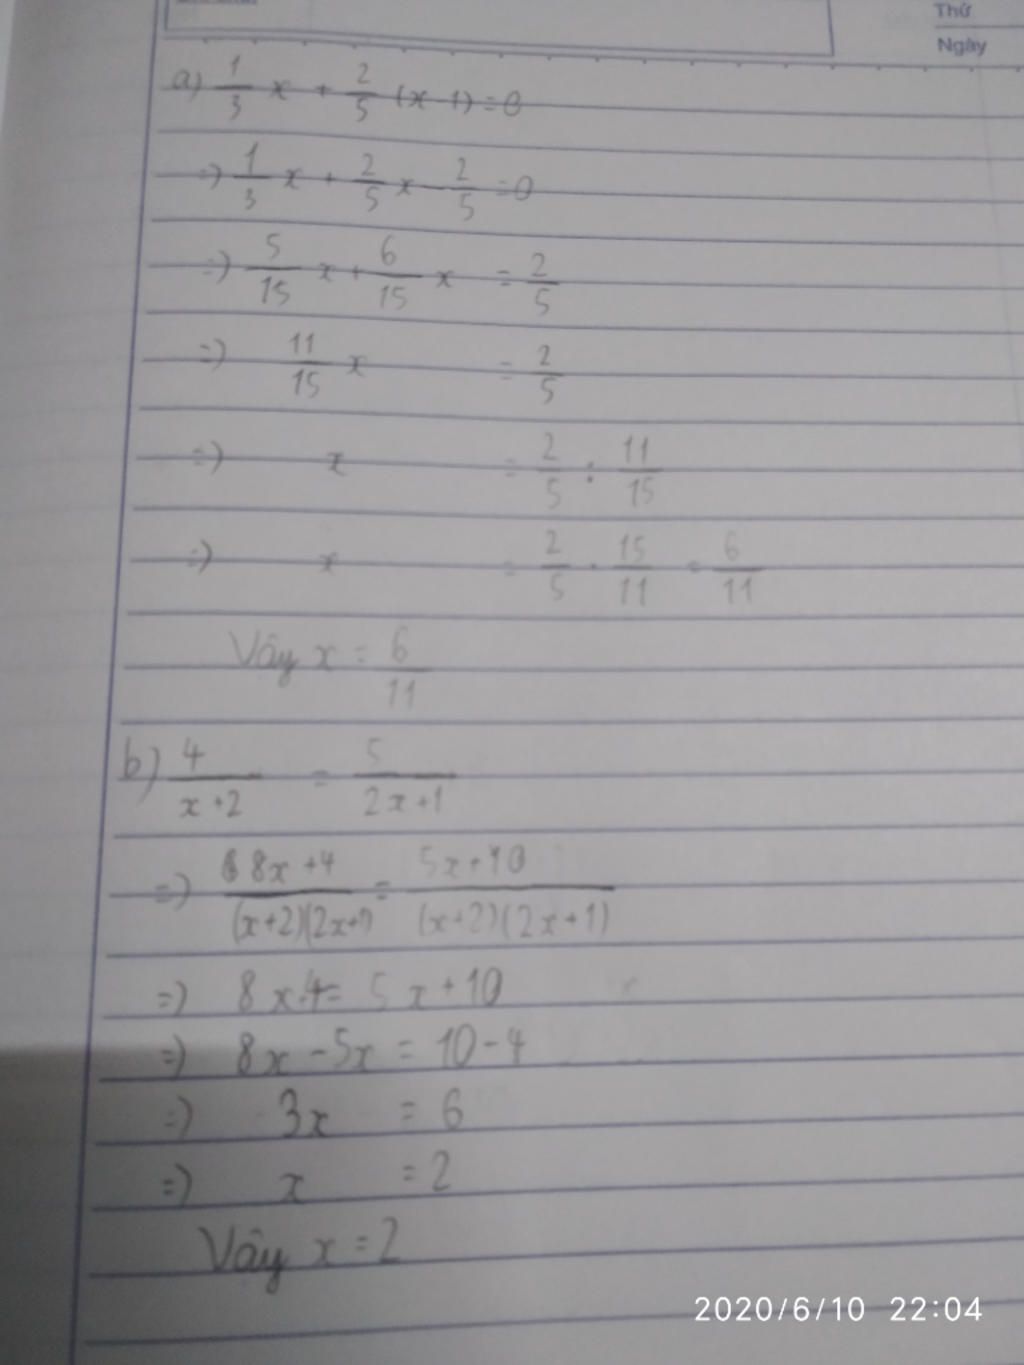 Thứ
Ngày
a) 1/3 x + 2/5 (x-1) = 0
=) 1/3 x + 2/5 x - 2/5 = 0
=) 5/15 x + 6/15 x = 2/5
=) 11/15 x = 2/5
=) x = 2/5 : 11/15
=) x = 2/5 . 15/11 = 6/11
Vậy x = 6/11
b) 4/(x+2) = 5/(2x+1)
=) (8x+4)/((x+2)(2x+1)) = (5x+10)/((x+2)(2x+1))
=) 8x+4 = 5x+10
=) 8x - 5x = 10 - 4
=) 3x = 6
=) x = 2
Vậy x = 2
2020/6/10 22:04